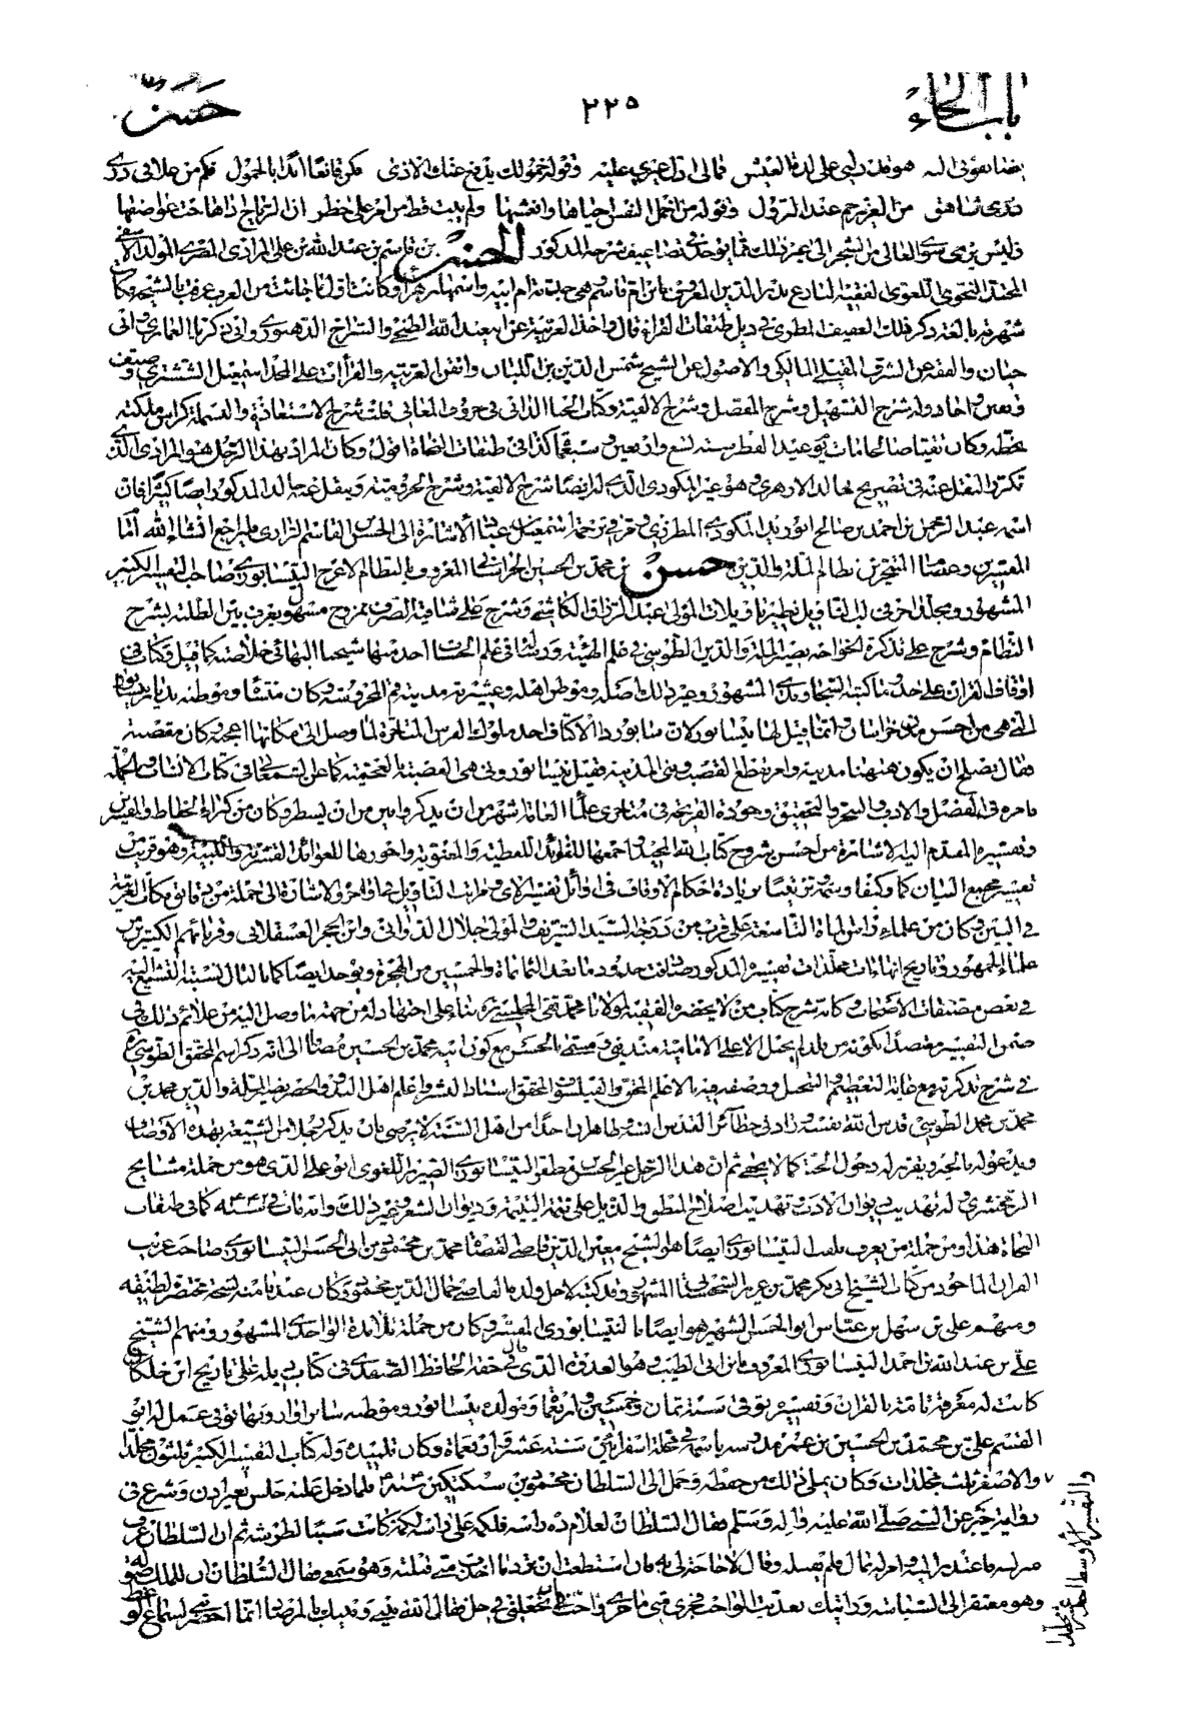 باب الحاء
٢٢٥
حسن
هو فى العيش فمالى اذل لغيرى عليه وقوله خمولك يدفع عنك الاذى فكن قانعا ابدا بالخمول فكم من علا فى ذرى
من العز يرجم عند النزول وقوله من اخمل النفس احياها وانعشها ولم يبت قط من امر على خطر ان الرياح اذا هاجت عواصفها
فليس يرمى سوى العالى من الشجر الى غير ذلك مما يوجد فى تضاعيف شرحه المذكور الحسن بن قاسم بن عبد الله بن على المرادى المصرى المولد الآسفى
المحتد النحوى اللغوى الفقيه البارع بدر الدين المعروف بابن ام قاسم وهى جدته ام ابيه واسمها زهرا وكانت اول ما جائت من الغرب عرفت بالشيخة وكانت
شهرته تابعة ذكر ذلك العفيف المطرى فى ذيل طبقات القراء قال واخذ العربية عن ابى عبد الله الطنجى والسراج الدمنهورى وابى زكريا الغمارى وابى
حيان والفقه عن الشرف المقيلى المالكى والاصول عن الشيخ شمس الدين بن اللبان واتقن العربية والقرائات على المجد اسمعيل الششترى وصنف
وتفنن واجاد وله شرح التسهيل وشرح المفصل وشرح الالفية وكتاب الجنا الدانى فى حروف المعانى قلت شرح الاستعاذة والبسملة كراس ملكته
بخطه وكان تقيا صالحا مات يوم عيد الفطر سنة تسع واربعين وسبعمائة كذا فى طبقات النحاة اقول وكان المراد بهذا الرجل هو المرادى الذى
تكرر النقل عنه فى تصريح خالد الازهرى وهو غير المكودى الذى له ايضا شرح الالفية وشرح الجرومية وينقل عنه خالد المذكور ايضا كثيرا فان
اسمه عبد الرحمن بن احمد بن صالح ابو زيد المكودى المطرزى ومر فى ترجمة اسمعيل بن عباد الاشارة الى الحسن بن القاسم الرازى فليراجع انشاء الله
نظام الملة والدين حسن بن محمد بن الحسين الخراسانى المعروف بالنظام الاعرج النيسابورى صاحب التفسير الكبير
المشهور ومجلد آخر فى لب التاويل نظير تاويلات المولى عبد الرزاق الكاشى وشرح على شافية الصرف ممزوج مشهور يعرف بين الطلبة بشرح
النظام وشرح على تذكرة الخواجه نصير الملة والدين الطوسى فى علم الهيئة ورسالة فى علم الحساب اخذ منها شيخنا البهائى خلاصته كما قيل وكتاب فى
اوقاف القرآن على حذو ما كتبه السجاوندى المشهور وغير ذلك اصله وموطن اهله وعشيرته مدينة قم المحروسة وكان منشأه وموطنه بديار نيسابور
التى هى من احسن مدن خراسان وانما قيل لها نيسابور لان سابور ذا الاكتاف احد ملوك الفرس المتاخرة لما وصل الى مكانها اعجبه وكان مقصبة
فقال يصلح ان يكون هيهنا مدينة وامر بقطع القصب وبنى المدينة فقيل نيسابور ونى هى القصبة بالعجمية كما عن السمعانى فى كتاب الانساب وبالجملة
فامره فى الفضل والادب والتبحر والتحقيق وجودة القريحة فى متاخرى علماء العامة اشهر من ان يذكر وابين من ان يسطر وكان من كبراء الحفاظ والمفسرين
وتفسيره المقدم اليه الاشارة من احسن شروح كتاب الله المجيد واجمعها للفوائد اللفظية والمعنوية واحوزها للعوائد القشرية واللبية وهو قريب من
تفسير مجمع البيان كما وكيفا
فى البين وكان من علماء رأس المائة التاسعة على قرب من درجة السيد الشريف والمولى جلال الدين الدوانى وابن الحجر العسقلانى وقرنائهم الكثيرين من
علماء الجمهور وتاريخ انهاءات مجلدات تفسيره المذكور صادفت حدود ما بعد الثمانمائة والخمسين من الهجرة ويوجد ايضا كما بالبال نسبة التشيع اليه
فى بعض مصنفات الاصحاب وكانه شرح كتاب من لا يحضره الفقيه لمولانا محمد تقى المجلسى ره بناء على اجتهاد له من جهة ما وصل اليه من علائم ذلك فى
ضمن التفسير معتضدا بكونه من بلد لم يحمل الا على الامامية من ذى قبل ومسمى بالحسن مع كون ابيه محمد بن الحسين مضافا الى انه ذكر اسم المحقق الطوسى ره
فى شرح تذكرته مع غاية التعظيم والتبجيل ووصفه فيه بالاعلم المحقق والفيلسوف المحقق استاد البشر واعلم اهل البدو والحضر نصير الملة والدين محمد بن
محمد بن محمد الطوسى قدس الله نفسه وزاد فى حظائر القدس انسه وظاهر ان احدا من اهل السنة لا يرضى بان يذكر رجلا من الشيعة بهذه الاوصاف
ويدعو له بالخير ويقر له بدخول الجنة كما لا يخفى ثم ان هذا الرجل غير الحسن بن مظفر النيسابورى الضرير اللغوى ابو على الذى هو من جملة مشايخ
الزمخشرى وله تهذيب ديوان الادب وتهذيب اصلاح المنطق والذيل على تتمة اليتيمة وديوان الشعر وغير ذلك وانه مات فى سنة ٤٤٢ كما فى طبقات
النحاة هذا ومن جملة من يعرف بلقب النيسابورى ايضا هو الشيخ معين الدين قاضى القضاة محمد بن محمود بن ابى الحسن النيسابورى صاحب غريب
القرآن الماخوذ من كتاب الشيخ ابى بكر محمد بن عزيز السجستانى المشهور وقد كتبه لاجل ولده القاضى جمال الدين محمود وكان عندنا منه نسخة مختصرة لطيفة
ومنهم على بن سهل بن عباس ابو الحسن الشهير هو ايضا بالنيسابورى المفسر وكان من جملة تلامذة الواحدى المشهور ومنهم الشيخ
على بن عبد الله بن احمد النيسابورى المعروف بابن ابى الطيب وهو العدل الذى قال فى حقه الحافظ الصفدى فى كتاب ذيله على تاريخ ابن خلكان
كانت له معرفة تامة بالقرآن وتفسيره توفى سنة ثمان وخمسين واربعمائة ومولده بنيسابور وموطنه سابزوار وبها توفى عمل له ابو
القسم على بن محمد بن الحسين بن عمر مدرسة باسمه فى محلة اسفرايس سنة عشر واربعمائة وكان تلميذه وله كتاب التفسير الكبير ثلثون مجلدا
والاصغر ثلث مجلدات وكان يملى ذلك من حفظه وحمل الى السلطان محمود بن سبكتكين سنة فلما دخل عليه جلس بغير اذن وشرع فى
رواية خبر عن النبى صلى الله عليه واله وسلم فقال السلطان لغلام ده راسه فلكمه على راسه لكمة كانت سببا لطرشه ثم ان السلطان عرف
منزلته فاعتذر اليه وامر له بمال فلم يقبله وقال لا حاجة لى به فان استطعت ان ترد ما اخذت منى قبلته وهو سمعى فقال السلطان ان للملك صولة
وهو مفتقر الى السياسة ورايتك تعديت الواجب فجرى منى ما جرى واحب ان تجعلنى فى حل فقال الله بينى وبينك بالمرصاد انما احضرتنى لسماع الوعظ
والتفسير الاوسط احد عشر مجلدا